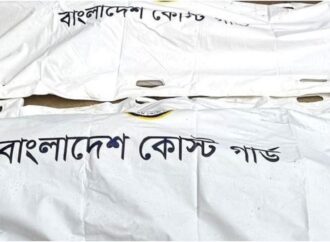 বাংলাদেশ কোস্ট গার্ড
বাংলাদেশ কোস্ট গার্ড